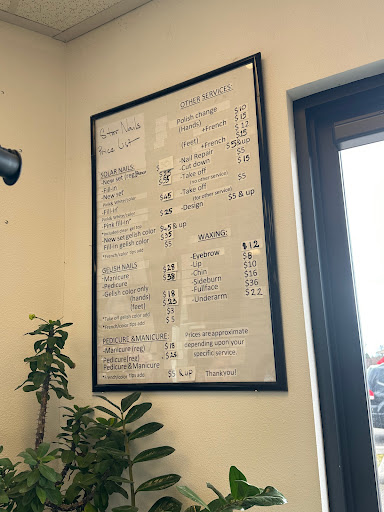 Star Nails
Price List
SOLAR NAILS:
-New set (reg)
-Fill-in
-New set $45
Pink & White/color
-Fill-in
Pink & White/color
-Pink fill-in $25
-New set gelish color $45 & up
-Fill-in gelish color $35
*French/color tips add $5
GELISH NAILS
-Manicure $28
-Pedicure $38
-Gelish color only
(hands) $18
(feet) $25
*Take off gelish color add $3
*French/color tips add $5
PEDICURE & MANICURE:
-Manicure (reg) $15
-Pedicure (reg) $25
-Pedicure & Manicure
*French/color tips add $5 & up
OTHER SERVICES:
Polish change
(Hands) $10
+French $15
(Feet) $12
+French $15
-Nail Repair $5 & up
-Cut down $5
-Take off $15
(no other service)
-Take off $5
(for other service)
-Design $5 & up
WAXING:
-Eyebrow $12
-Up $8
-Chin $10
-Sideburn $16
-Fullface $36
-Underarm $22
Prices are approximate
depending upon your
specific service.
Thank you!